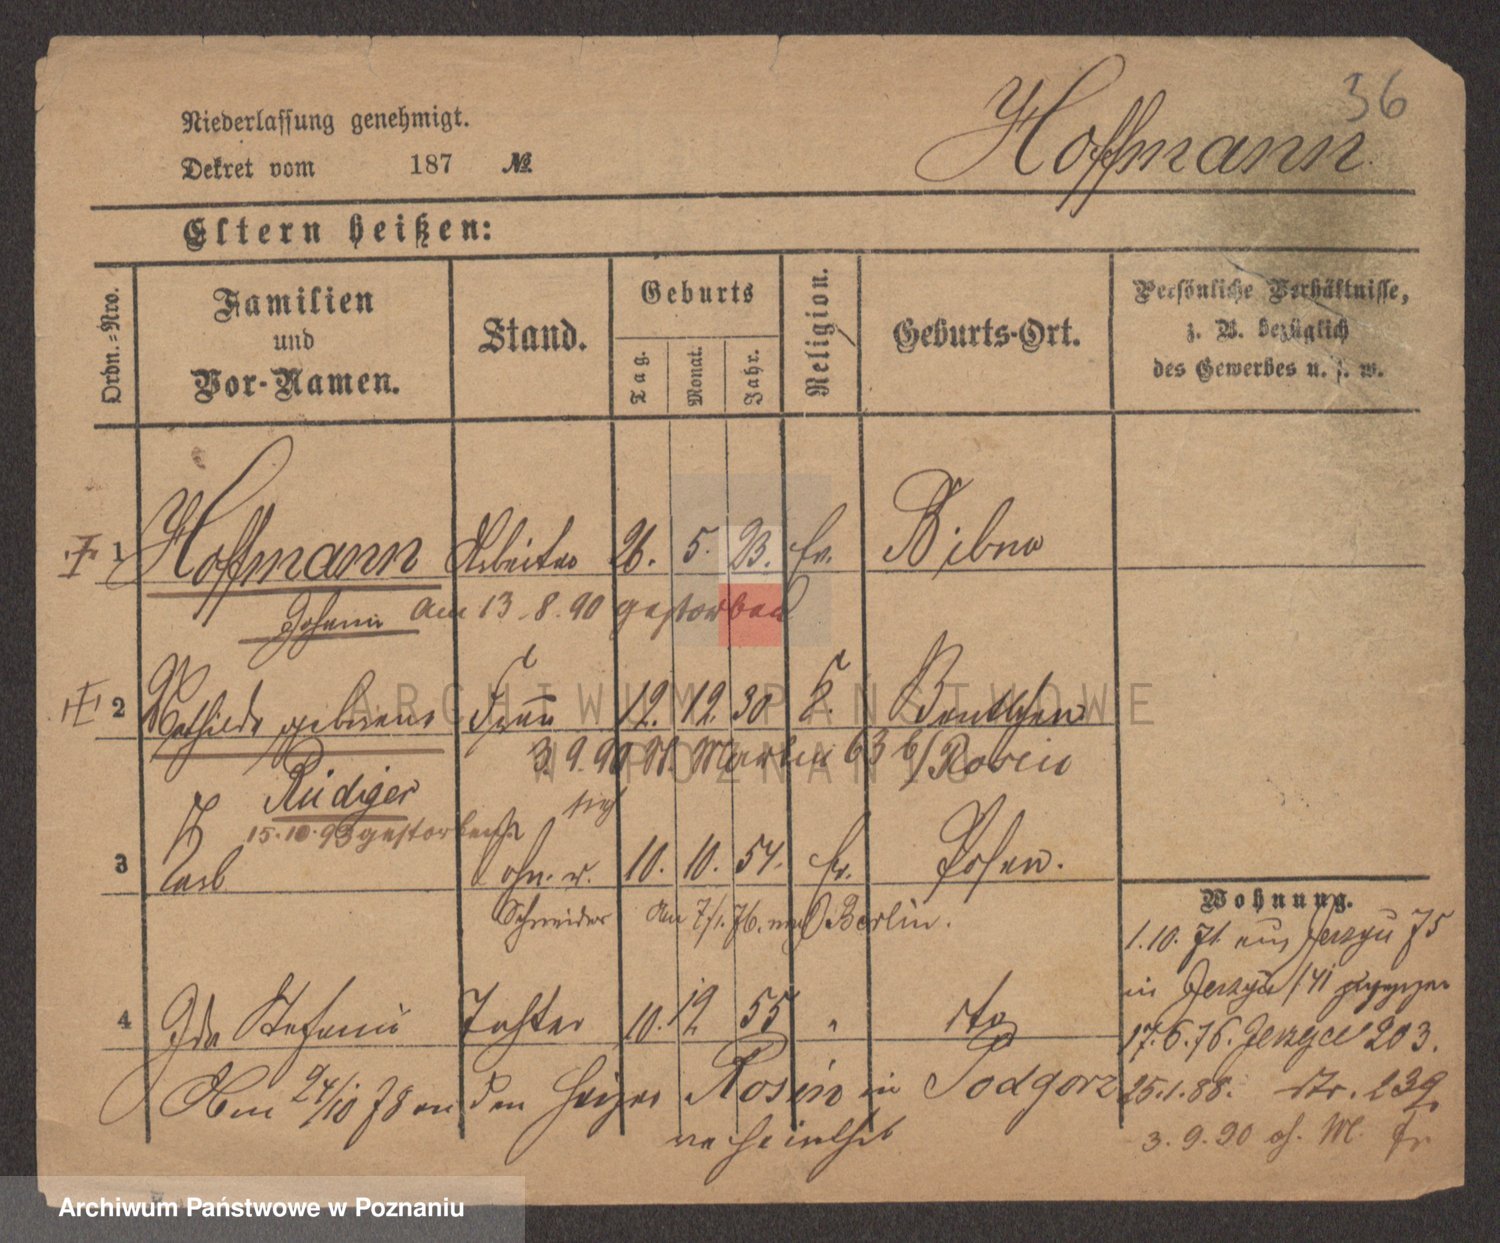 36
Niederlassung genehmigt.
Hoffmann
Dekret vom 187 №
Eltern heißen:
Ordn.-Nro.
Familien
und
Vor-Namen.
Stand.
Geburts
Tag.
Monat.
Jahr.
Religion.
Geburts-Ort.
Persönliche Verhältnisse,
z. B. bezüglich
des Gewerbes u. s. w.
1 Hoffmann Arbeiter 26. 5. 23. ev. Bibno
Johann am 13.8.90 gestorben
2 Mathilde geborene Frau 12. 12. 30 Beuthen
Rüdiger
3.9.90 Martin 63 b/Rosin
15.10.93 gestorben
3 Carl Sohn 10. 10. 54. ev. Posen.
Schneider Am 7/1.76. Berlin.
Wohnung.
1.10.71 aus Jerzyce 75
in Jerzyce 141 gezogen
4 Ida Stefanie Tochter 10. 12 55 " dto
17.6.76. Jerzyce 203.
Am 24/10 78 an den Heizer Rosin in Podgorz
25.1.88. dto. 239
verheirathet
3.9.90 M.
ARCHIWUM PAŃSTWOWE
W POZNANIU
Archiwum Państwowe w Poznaniu